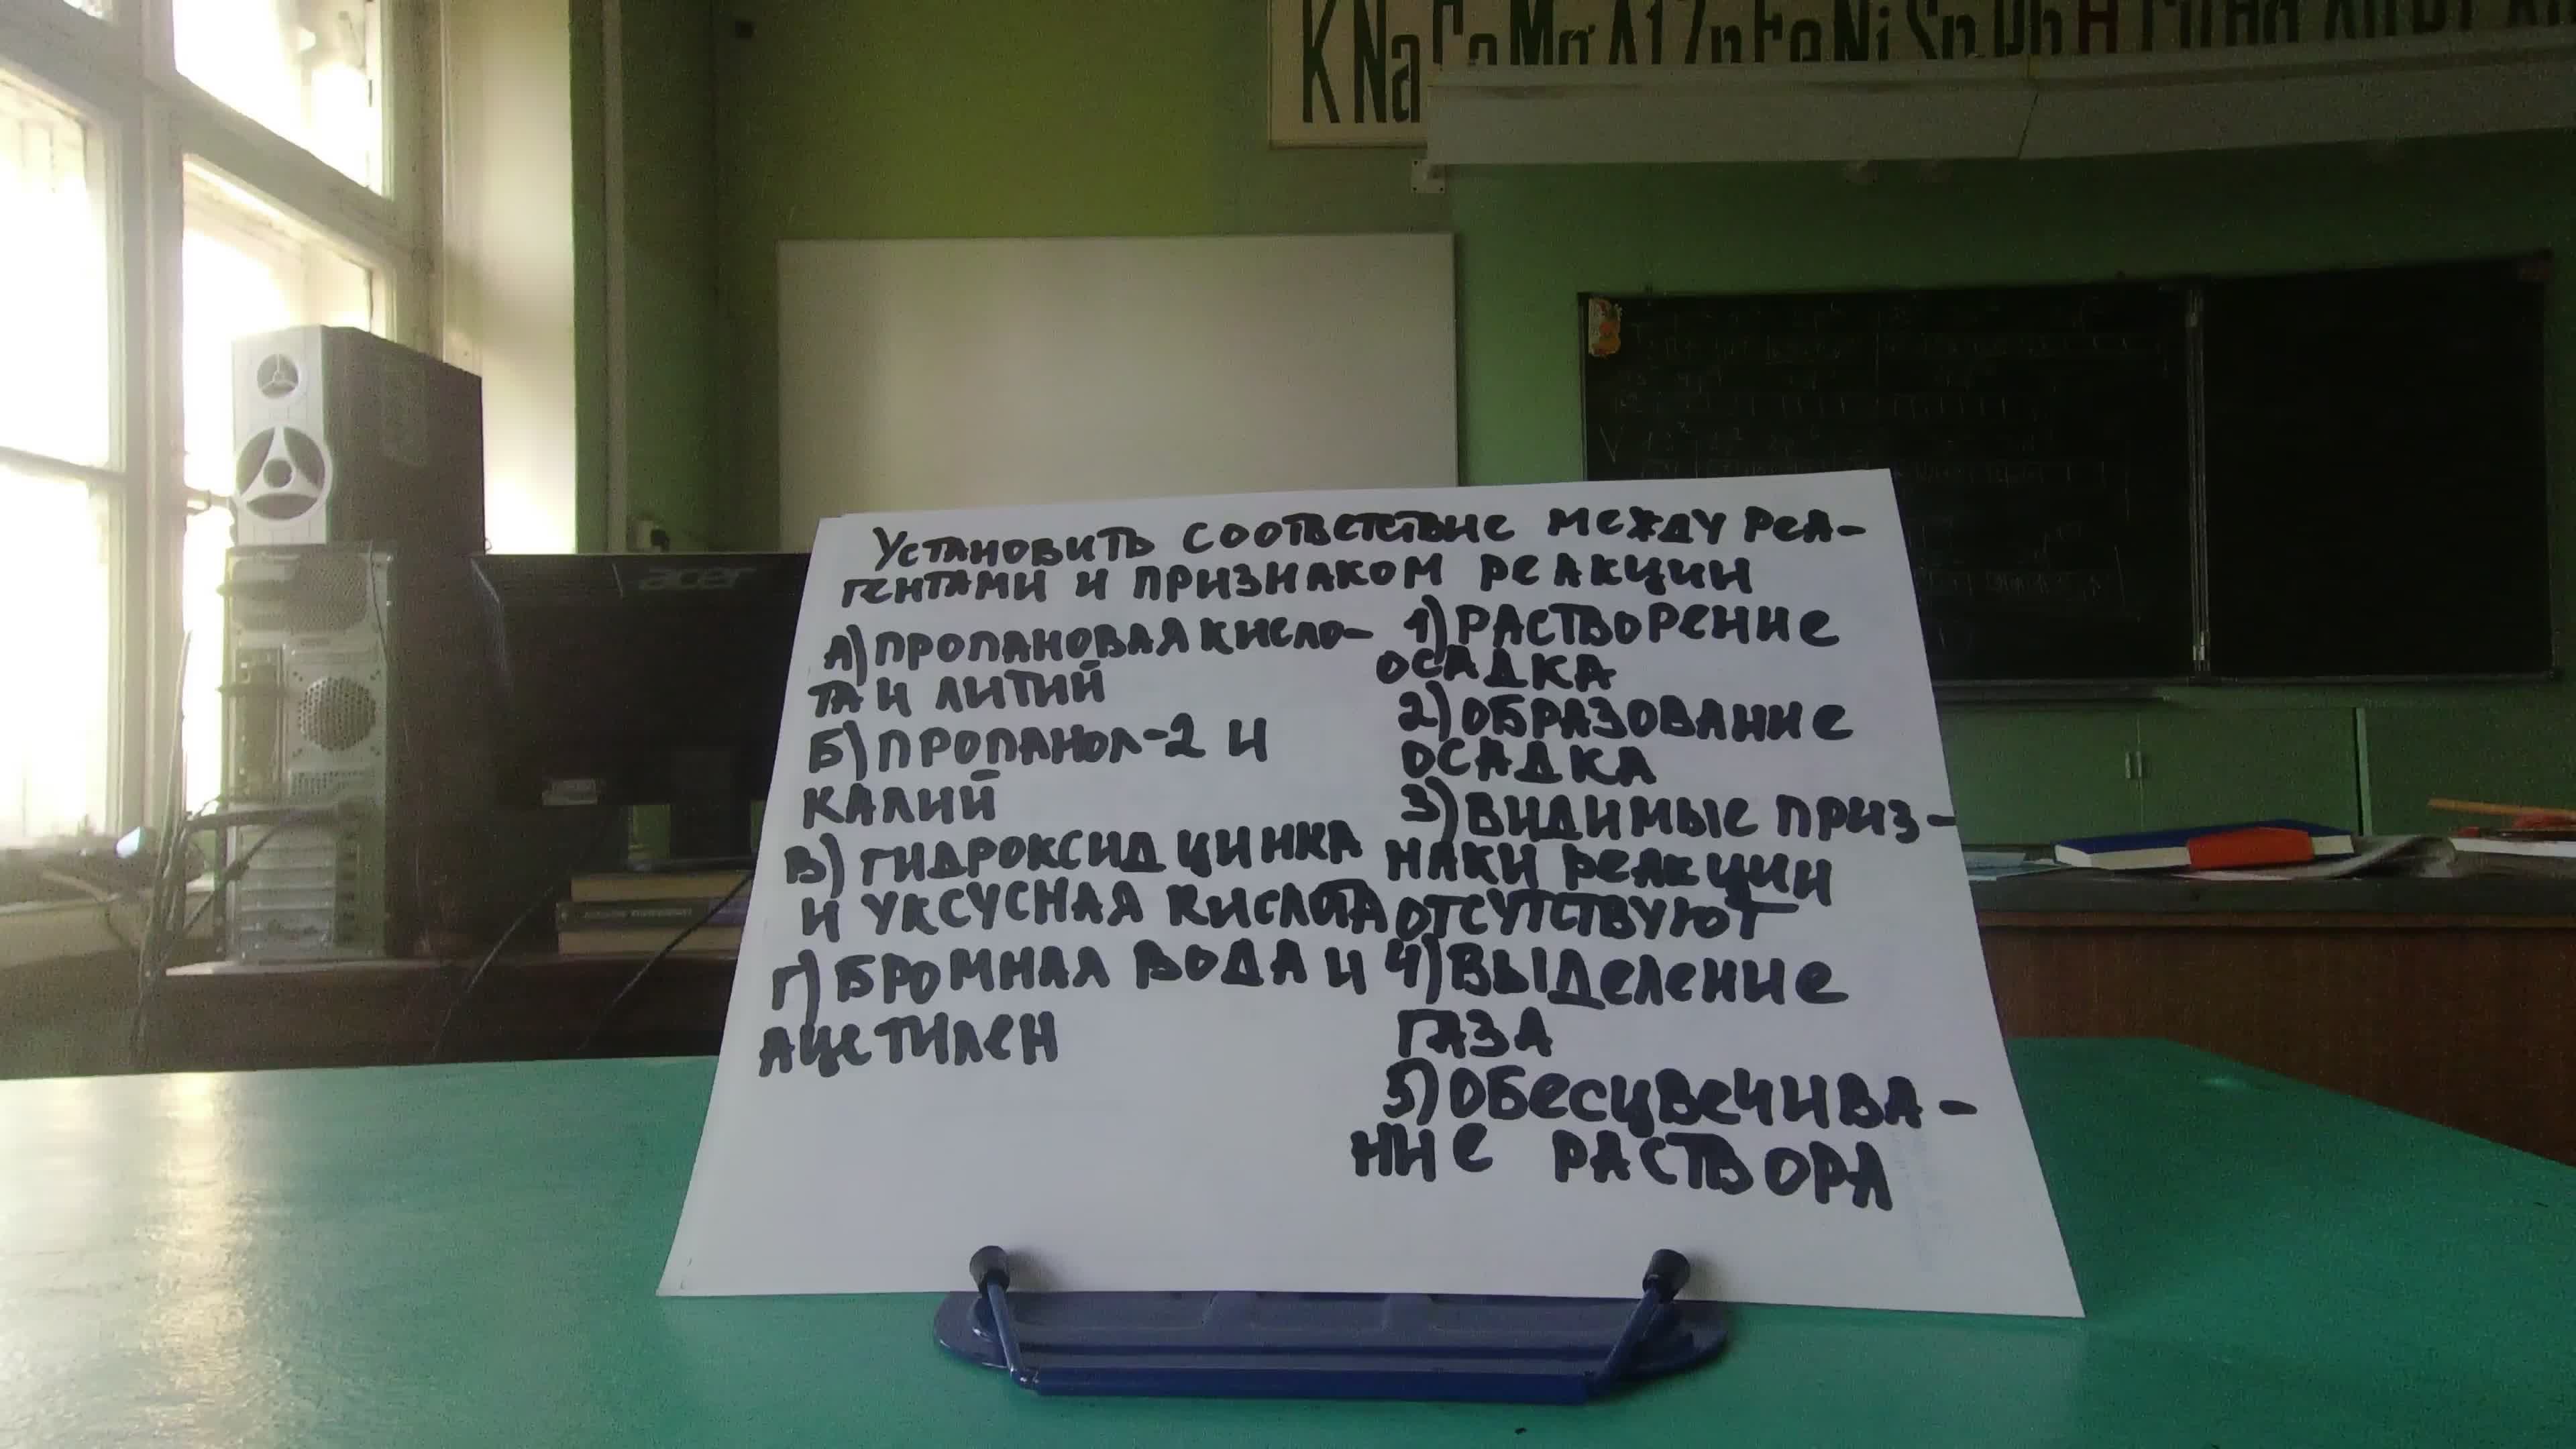 K Na Ca Mg Al Zn Fe Ni Sn Pb H
acer
Установить соответствие между реа-
гентами и признаком реакции
А) пропановая кисло-
та и литий
Б) пропанол-2 и
калий
В) гидроксид цинка
и уксусная кислота
Г) бромная вода и
ацетилен
1) растворение
осадка
2) образование
осадка
3) видимые приз-
наки реакции
отсутствуют
4) выделение
газа
5) обесцвечива-
ние раствора